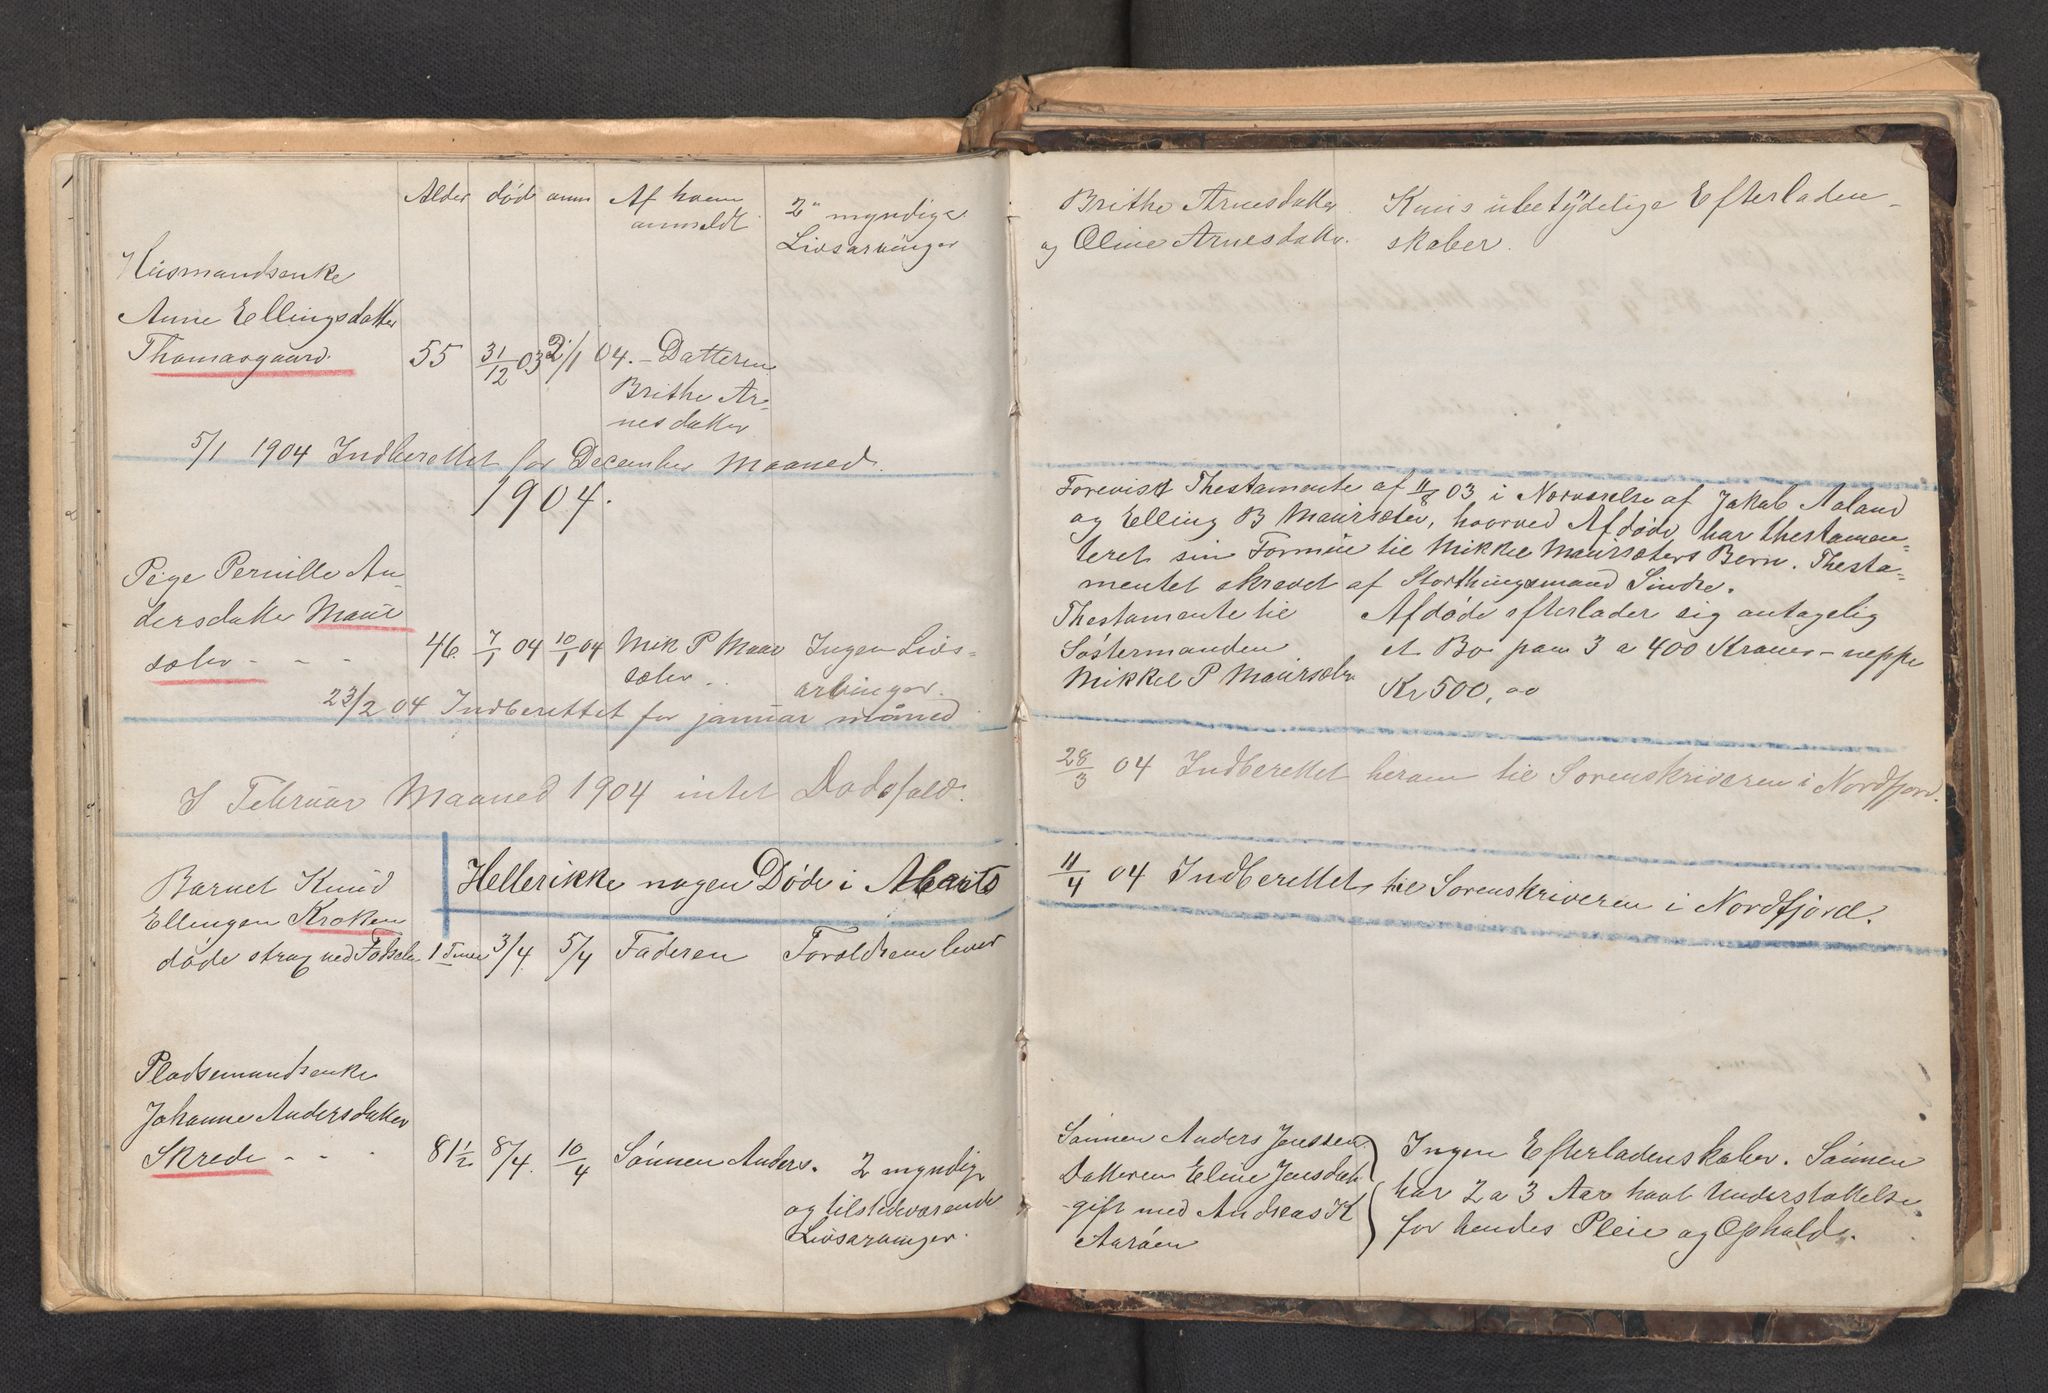 Alder døde anm Af hvem
anmeldt
2 myndige
Livsarvinger
Husmandsenke
Anne Ellingsdatter
Thomasgaard. 55 31/12 03 2/1 04. - Datteren
Brithe Ar-
nesdatter
5/1 1904 Indberettet for December Maaned.
1904.
Pige Pernille An-
dersdatter Maur
sæter - - - 46. 7/1 04 10/1 04 Mik P Maur
sæter.
Ingen Livs-
arvinger.
23/2 04 Indberettet for januar måned
I Februar Maaned 1904 intet Dødsfald.
Heller ikke nogen Døde i Marts
Barnet Knud
Ellingen Kroken
døde strax ved Fødselen 1 Time 3/4 5/4 Faderen Forældrene lever
Pladsemandsenke
Johanne Andersdatter
Skrede - - - 81 1/2 8/4. 10/4 Sønnen Anders. 2 myndige
og tilstedeværende
Livsarvinger.
Brithe Arnesdatter
og Oline Arnesdatter.
Kuns ubetydelige Efterladen-
skaber.
Forevist Thestamente af 11/8 03 i Nærværelse af Jakob Aaland
og Elling B Maursæter, hvorved Afdøde har thestamen-
teret sin Formue til Mikkel Maursæters Børn. Thesta-
mentet skrevet af Storthingsmand Sindre.
Thestamente til
Søstermanden
Mikkel P Maursæter
Afdøde efterlader sig antagelig
et Bo paa 3 a 400 Kroner - neppe
Kr 500,00
28/3 04 Indberettet herom til Sorenskriveren i Nordfjord.
11/4 04 Indberettet til Sorenskriveren i Nordfjord.
Sønnen Anders Jenssen
Datteren Eline Jensdatter
gift med Andreas K
Aarøen
Ingen Efterladenskaber. Sønnen
har 2 a 3 Aar havt Understøttelse
for hendes Pleie og Ophold.